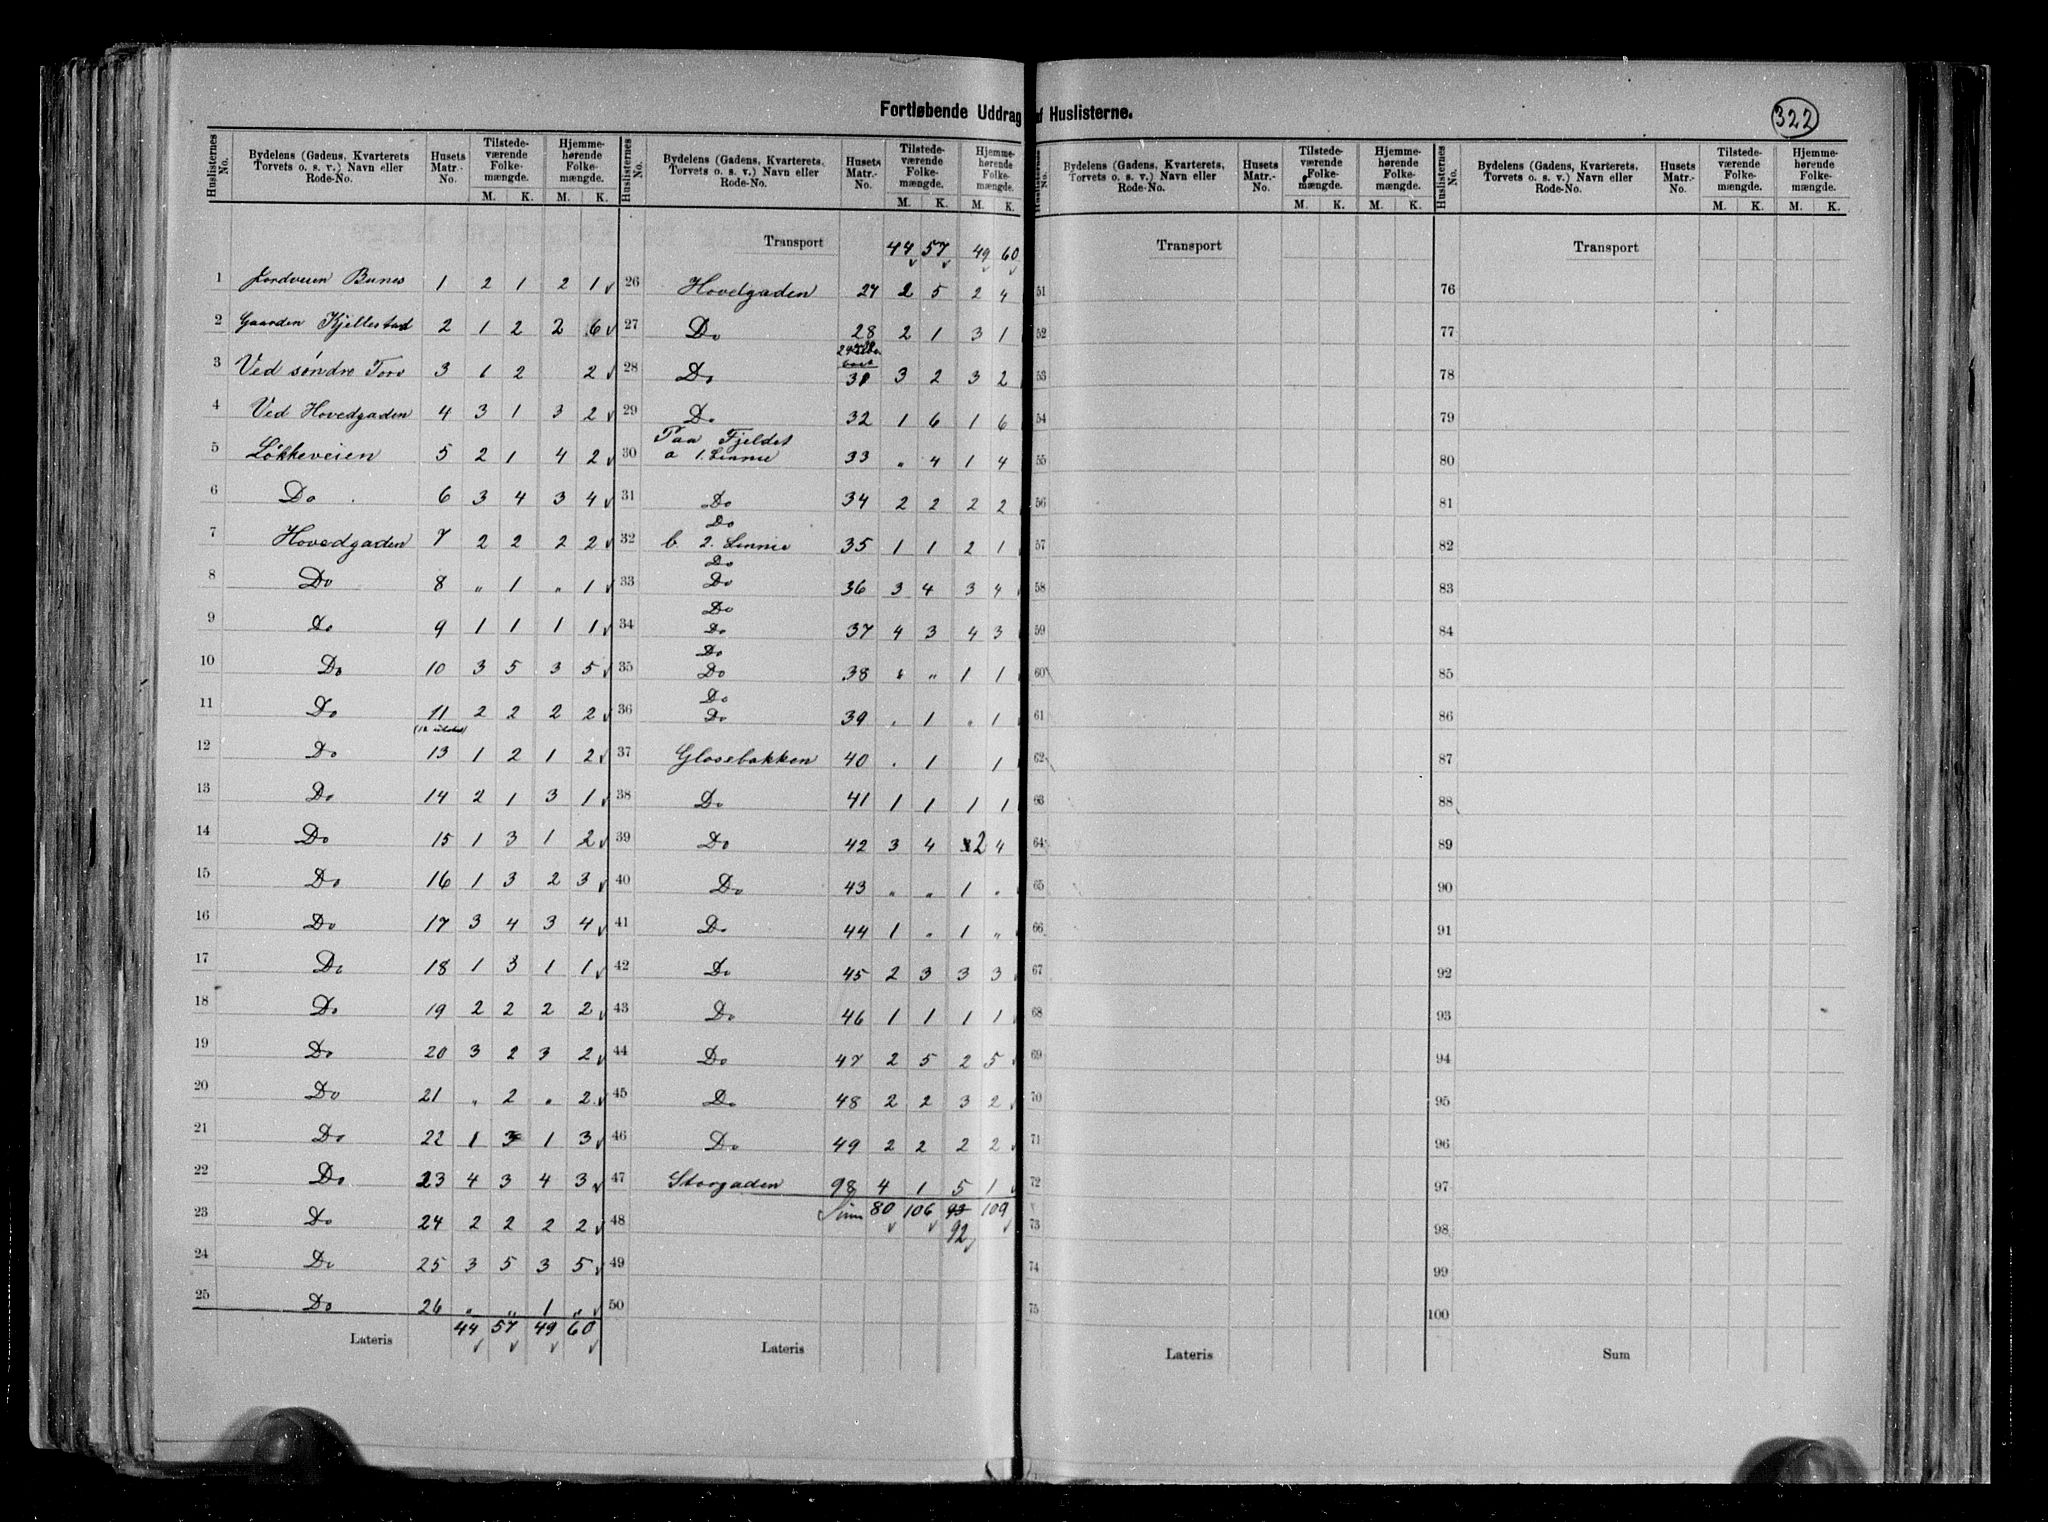 Fortløbende Uddrag af Huslisterne.
322
Huslisternes No. Bydelens (Gadens, Kvarterets Torvets o. s. v.) Navn eller Rode-No. Husets Matr.-No. Tilstedeværende Folkemængde. M. K. Hjemmehørende Folkemængde. M. K.
1 Bunes 1 2 1 2 1
2 Gaarden Kjellestad 2 1 2 2 6
3 Ved søndre Torv 3 1 2 2
4 Ved Hovedgaden 4 3 1 3 2
5 Løkkeveien 5 2 1 4 2
6 Do 6 3 4 3 4
7 Hovedgaden 7 2 2 2 2
8 Do 8 „ 1 „ 1
9 Do 9 1 1 1 1
10 Do 10 3 5 3 5
11 Do 11 2 2 2 2
12 Do 13 1 2 1 2
13 Do 14 2 1 3 1
14 Do 15 1 3 1 2
15 Do 16 1 3 2 3
16 Do 17 3 4 3 4
17 Do 18 1 3 1 1
18 Do 19 2 2 2 2
19 Do 20 3 2 3 2
20 Do 21 „ 2 „ 2
21 Do 22 1 3 1 3
22 Do 23 4 3 4 3
23 Do 24 2 2 2 2
24 Do 25 3 5 3 5
25 Do 26 „ „ 1 „
Lateris 44 57 49 60
Huslisternes No. Bydelens (Gadens, Kvarterets, Torvets o. s. v.) Navn eller Rode-No. Husets Matr.-No. Tilstedeværende Folkemængde. M. K. Hjemmehørende Folkemængde. M. K.
Transport 44 57 49 60
26 Hovedgaden 27 2 5 2 4
27 Do 28 2 1 3 1
28 Do 31 3 2 3 2
29 Do 32 1 6 1 6
Paa Fjeldet
30 a 1. Linnie 33 „ 4 1 4
31 Do 34 2 2 2 2
Do
32 b. 2. Linnie 35 1 1 2 1
Do
33 Do 36 3 4 3 4
Do
34 Do 37 4 3 4 3
Do
35 Do 38 „ „ 1 1
Do
36 Do 39 „ 1 „ 1
37 Glosebakken 40 „ 1 1
38 Do 41 1 1 1 1
39 Do 42 3 4 2 4
40 Do 43 „ „ 1 „
41 Do 44 1 „ 1 „
42 Do 45 2 3 3 3
43 Do 46 1 1 1 1
44 Do 47 2 5 2 5
45 Do 48 2 2 3 2
46 Do 49 2 2 2 2
47 Storgaden 98 4 1 5 1
48 Sum 80 106 93 109
92
49
50
Lateris
Huslisternes No. Bydelens (Gadens, Kvarterets, Torvets o. s. v.) Navn eller Rode-No. Husets Matr.-No. Tilstedeværende Folkemængde. M. K. Hjemmehørende Folkemængde. M. K.
Transport
51
52
53
54
55
56
57
58
59
60
61
62
63
64
65
66
67
68
69
70
71
72
73
74
75
Lateris
Huslisternes No. Bydelens (Gadens, Kvarterets, Torvets o. s. v.) Navn eller Rode-No. Husets Matr.-No. Tilstedeværende Folkemængde. M. K. Hjemmehørende Folkemængde. M. K.
Transport
76
77
78
79
80
81
82
83
84
85
86
87
88
89
90
91
92
93
94
95
96
97
98
99
100
Sum